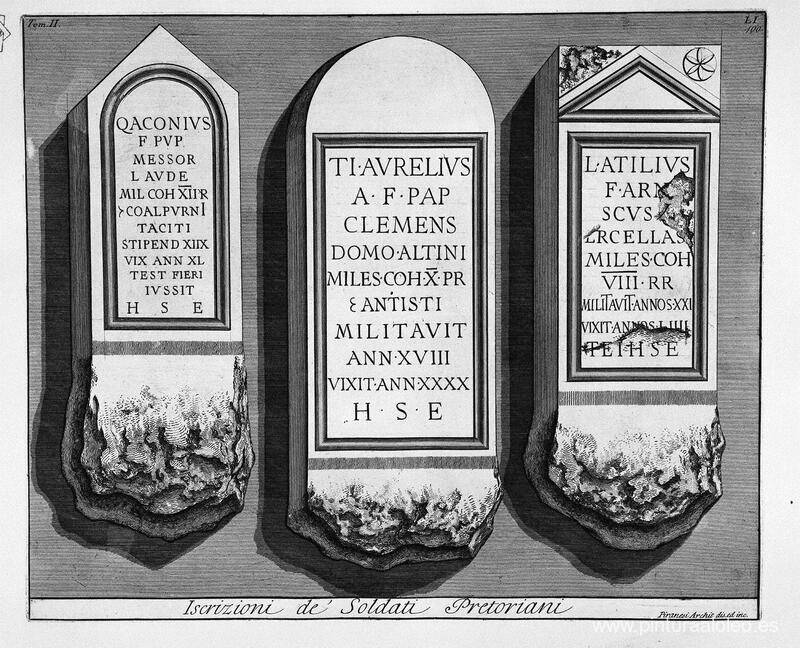 Tom. II.
LI
100
QACONIVS
F PVP
MESSOR
LAVDE
MIL COH X̅I̅I̅ P̅R
COALPVRNI
TACITI
STIPEND XIIX
VIX ANN XL
TEST FIERI
IVSSIT
H S E
TI·AVRELIVS
A·F·PAP
CLEMENS
DOMO·ALTINI
MILES·COH·X̅·PR
ANTISTI
MILITAVIT
ANN·XVIII
VIXIT·ANN·XXXX
H·S·E
L·ATILIVS
F·ARN
SCVS
ERCELLAS
MILES·COH
V̅I̅I̅I̅·RR
MILITAVIT·ANNOS·XXI
VIXIT·ANNOS·LIIII
TEIHSE
Iscrizioni de' Soldati Pretoriani
Piranesi Archit dis.ed inc.
www.pinturaaloleo.es